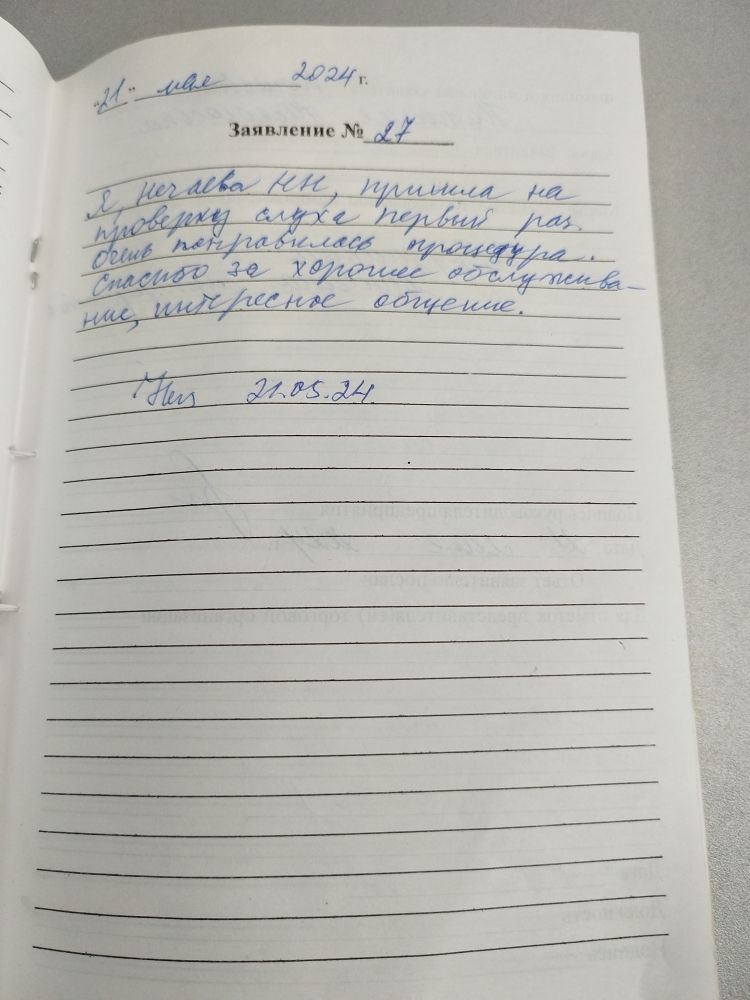 "21" мая 2024 г.
Заявление № 27
Я, Нечаева НН, пришла на
проверку слуха первый раз.
очень понравилась процедура.
Спасибо за хорошее обслужива-
ние, интересное общение.
21.05.24